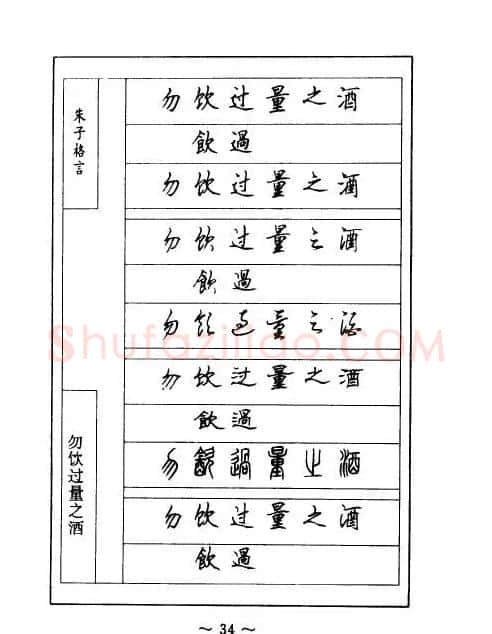 朱子格言
勿饮过量之酒
勿饮过量之酒
飲過
勿饮过量之酒
勿饮过量之酒
飲過
勿饮过量之酒
勿饮过量之酒
飲過
勿飲過量之酒
勿饮过量之酒
飲過
Shufaziliao.COM
~ 34 ~